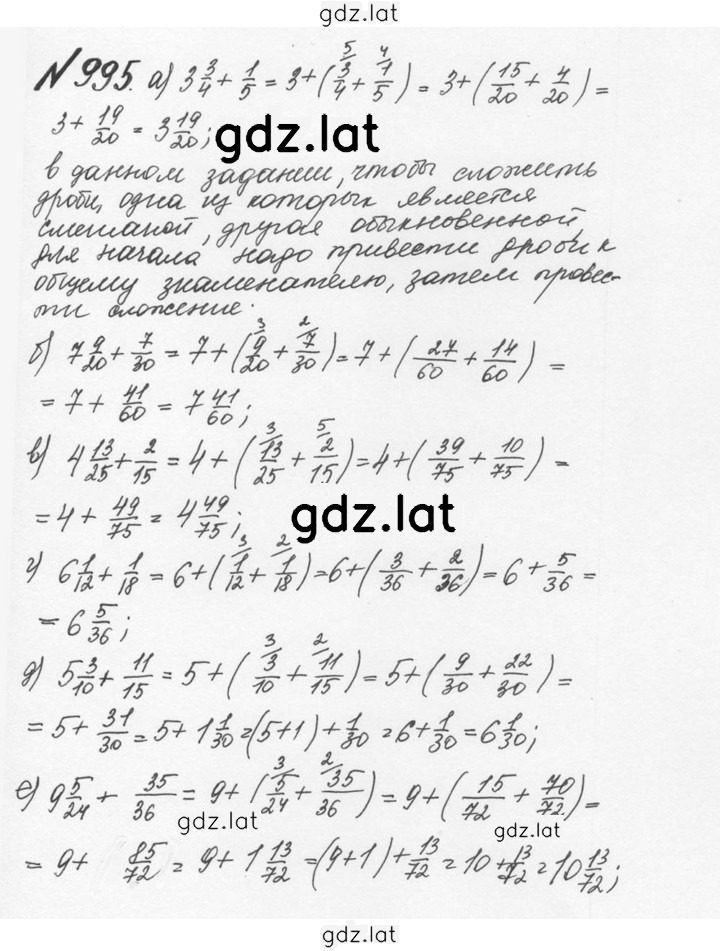 gdz.lat
№995. а) 3 3/4 + 1/5 = 3 + (3/4 ⁵ + 1/5 ⁴) = 3 + (15/20 + 4/20) =
3 + 19/20 = 3 19/20;
gdz.lat
в данном задании, чтобы сложить
дроби, одна из которых является
смешаной, другая обыкновенной,
для начала надо привести дроби к
общему знаменателю, затем провес-
ти сложение.
б) 7 9/20 + 7/30 = 7 + (9/20 ³ + 7/30 ²) = 7 + (27/60 + 14/60) =
= 7 + 41/60 = 7 41/60;
в) 4 13/25 + 2/15 = 4 + (13/25 ³ + 2/15 ⁵) = 4 + (39/75 + 10/75) =
= 4 + 49/75 = 4 49/75;
gdz.lat
г) 6 1/12 + 1/18 = 6 + (1/12 ³ + 1/18 ²) = 6 + (3/36 + 2/36) = 6 + 5/36 =
= 6 5/36;
д) 5 3/10 + 11/15 = 5 + (3/10 ³ + 11/15 ²) = 5 + (9/30 + 22/30) =
= 5 + 31/30 = 5 + 1 1/30 = (5+1) + 1/30 = 6 + 1/30 = 6 1/30;
е) 9 5/24 + 35/36 = 9 + (5/24 ³ + 35/36 ²) = 9 + (15/72 + 70/72) =
gdz.lat
gdz.lat
= 9 + 85/72 = 9 + 1 13/72 = (9+1) + 13/72 = 10 + 13/72 = 10 13/72;
gdz.lat